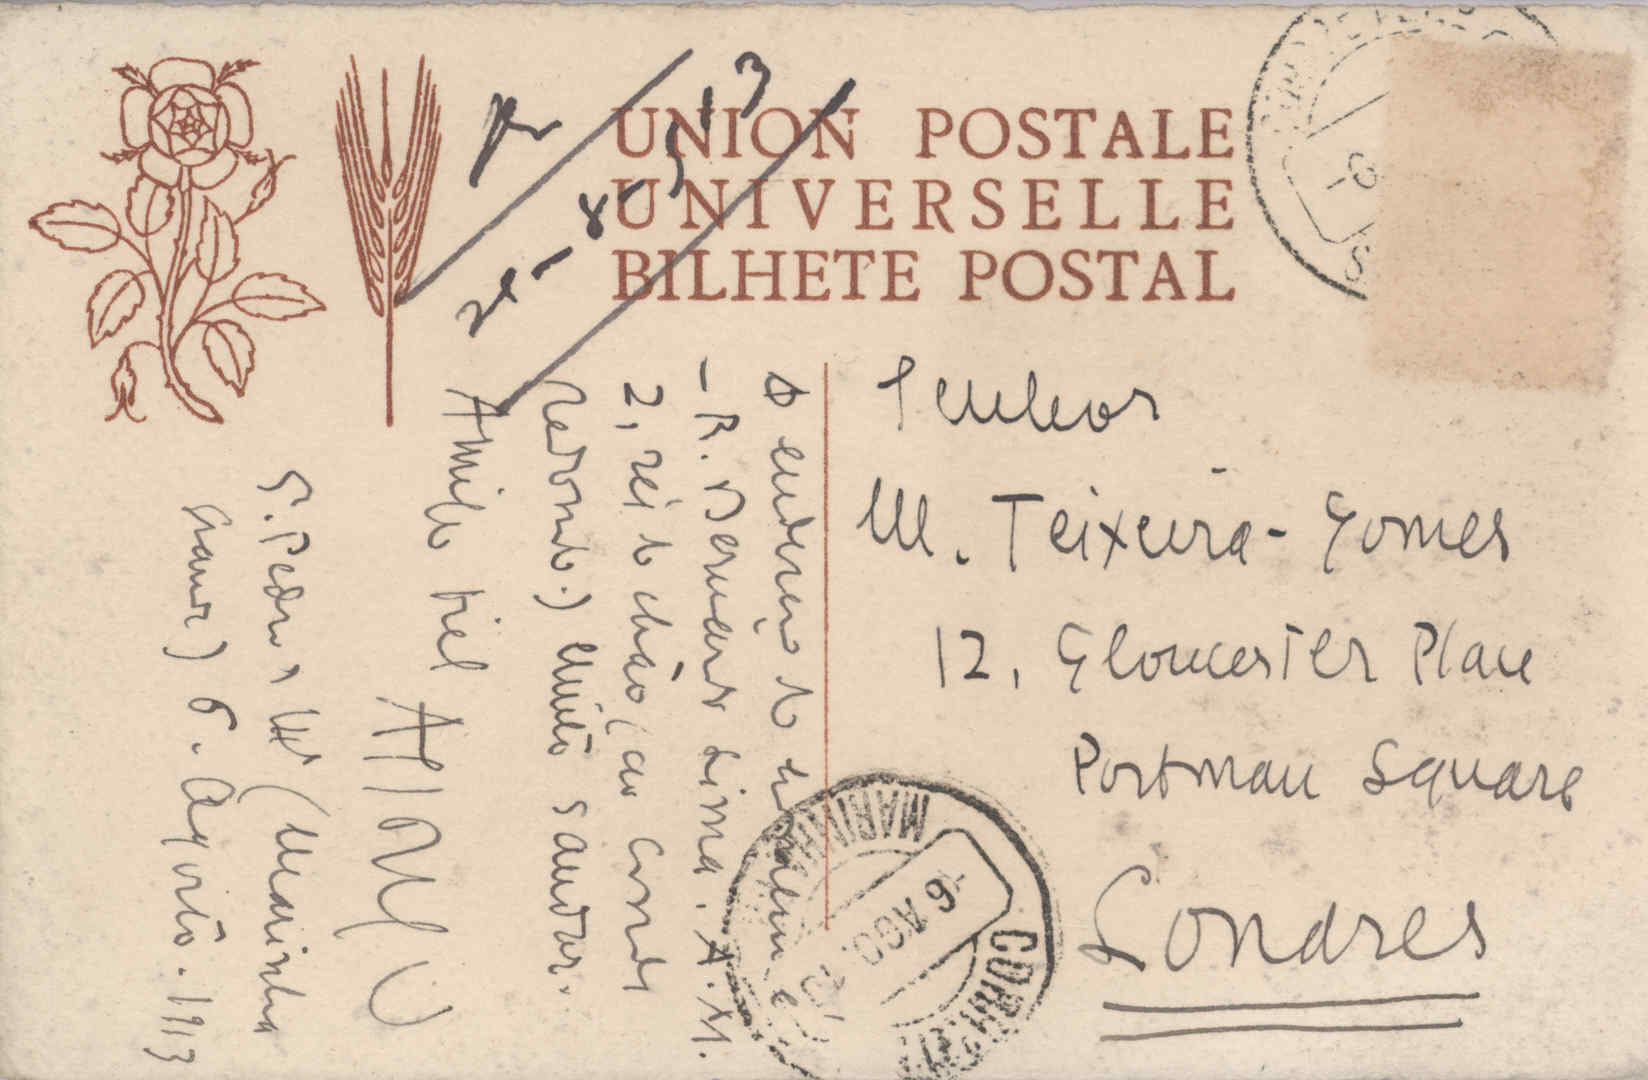 UNION POSTALE
UNIVERSELLE
BILHETE POSTAL
24-8-913
Senhor
M. Teixeira-Gomes
12, Gloucester Place
Portman Square
Londres
O endereço do homem é
- R. Bernardo Lima. A. M.
2, réz do chão, (ao Conde
redondo.) Muito saudar.
Amigo fiel
S. Pedro (Marinha
Grande) 6. Agosto. 1913
MARINHA
6 AGO. 13
CORREIO